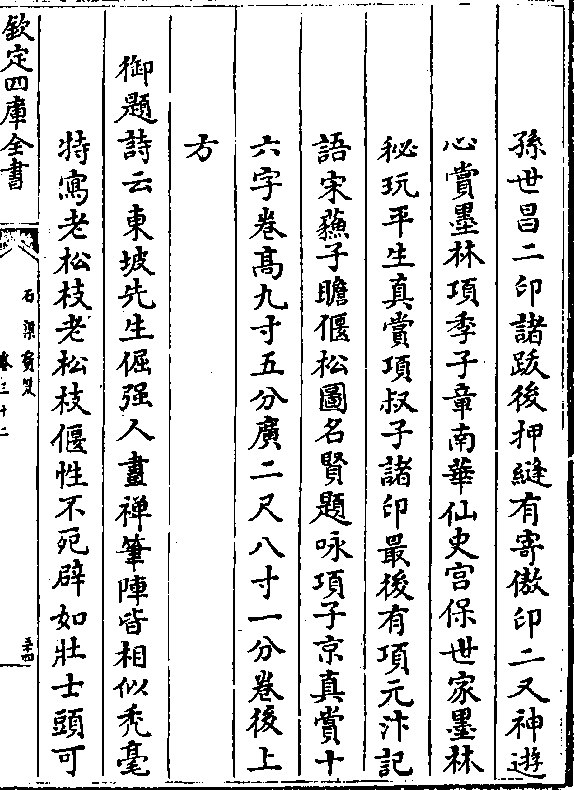 孫世昌二印諸跋後押縫有寄傲印二又神遊
心賞墨林項季子章南華仙史宫保世家墨林
秘玩平生真賞項叔子諸印最後有項元汴記
語宋蘓子瞻偃松圖名賢題咏項子京真賞十
六字卷髙九寸五分廣二尺八寸一分卷後上
方
御題詩云東坡先生倔强人畫禅筆陣皆相似秃毫
特寫老松枝老松枝偃性不死辟如壯士頭可
欽定四庫全書
石渠寳笈
卷三十二